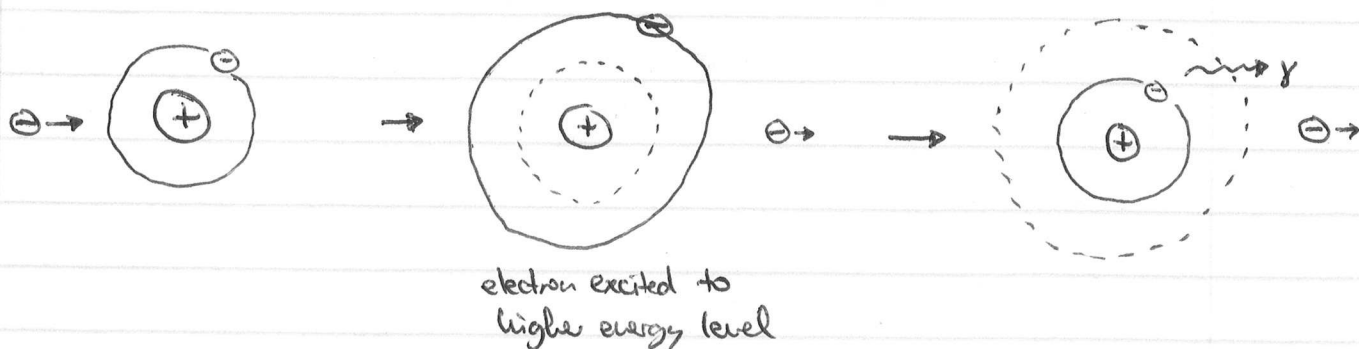 γ
electron excited to
higher energy level